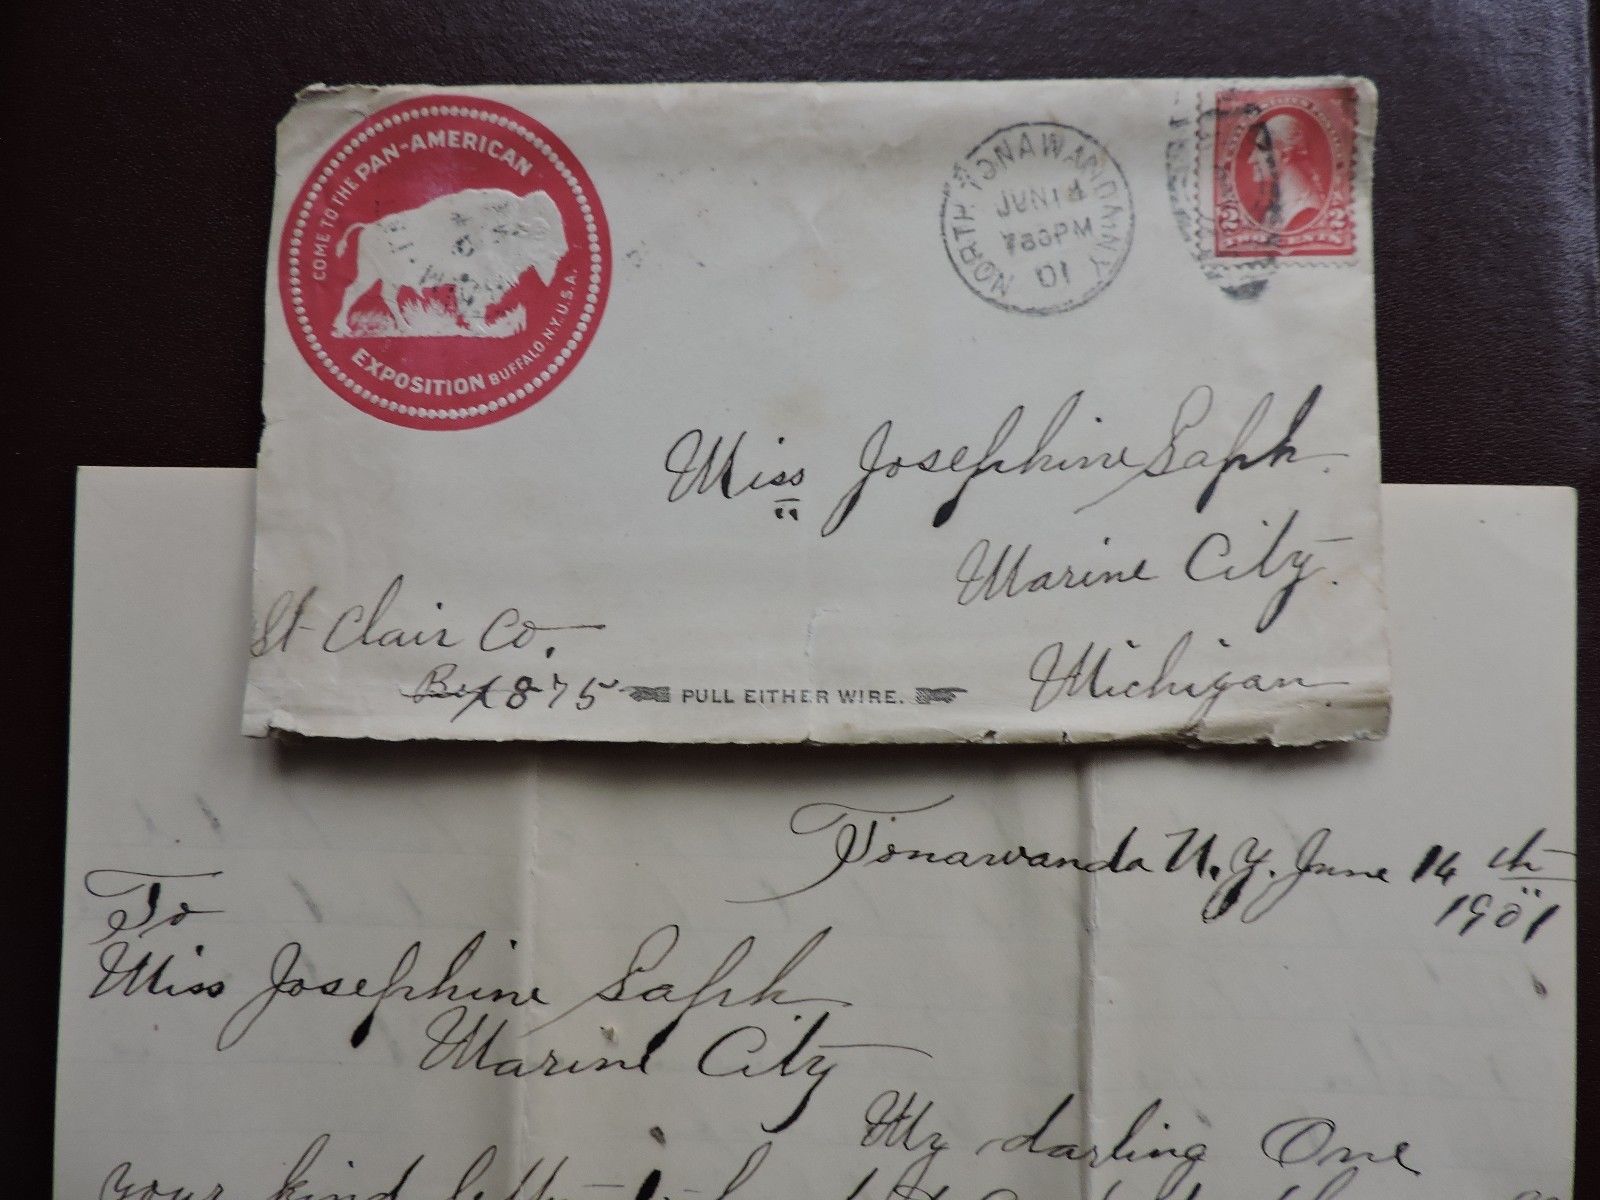 COME TO THE PAN-AMERICAN
EXPOSITION BUFFALO. N.Y. U.S.A.
NORTH TONAWANDA N.Y.
JUN 14
730PM
01
2 TWO CENTS 2
Miss Josephine Saph.
Marine City.
Michigan
St Clair Co.
Box 875
PULL EITHER WIRE.
Tonawanda N.Y. June 14th
1901
To
Miss Josephine Saph
Marine City
My darling One
your kind letter